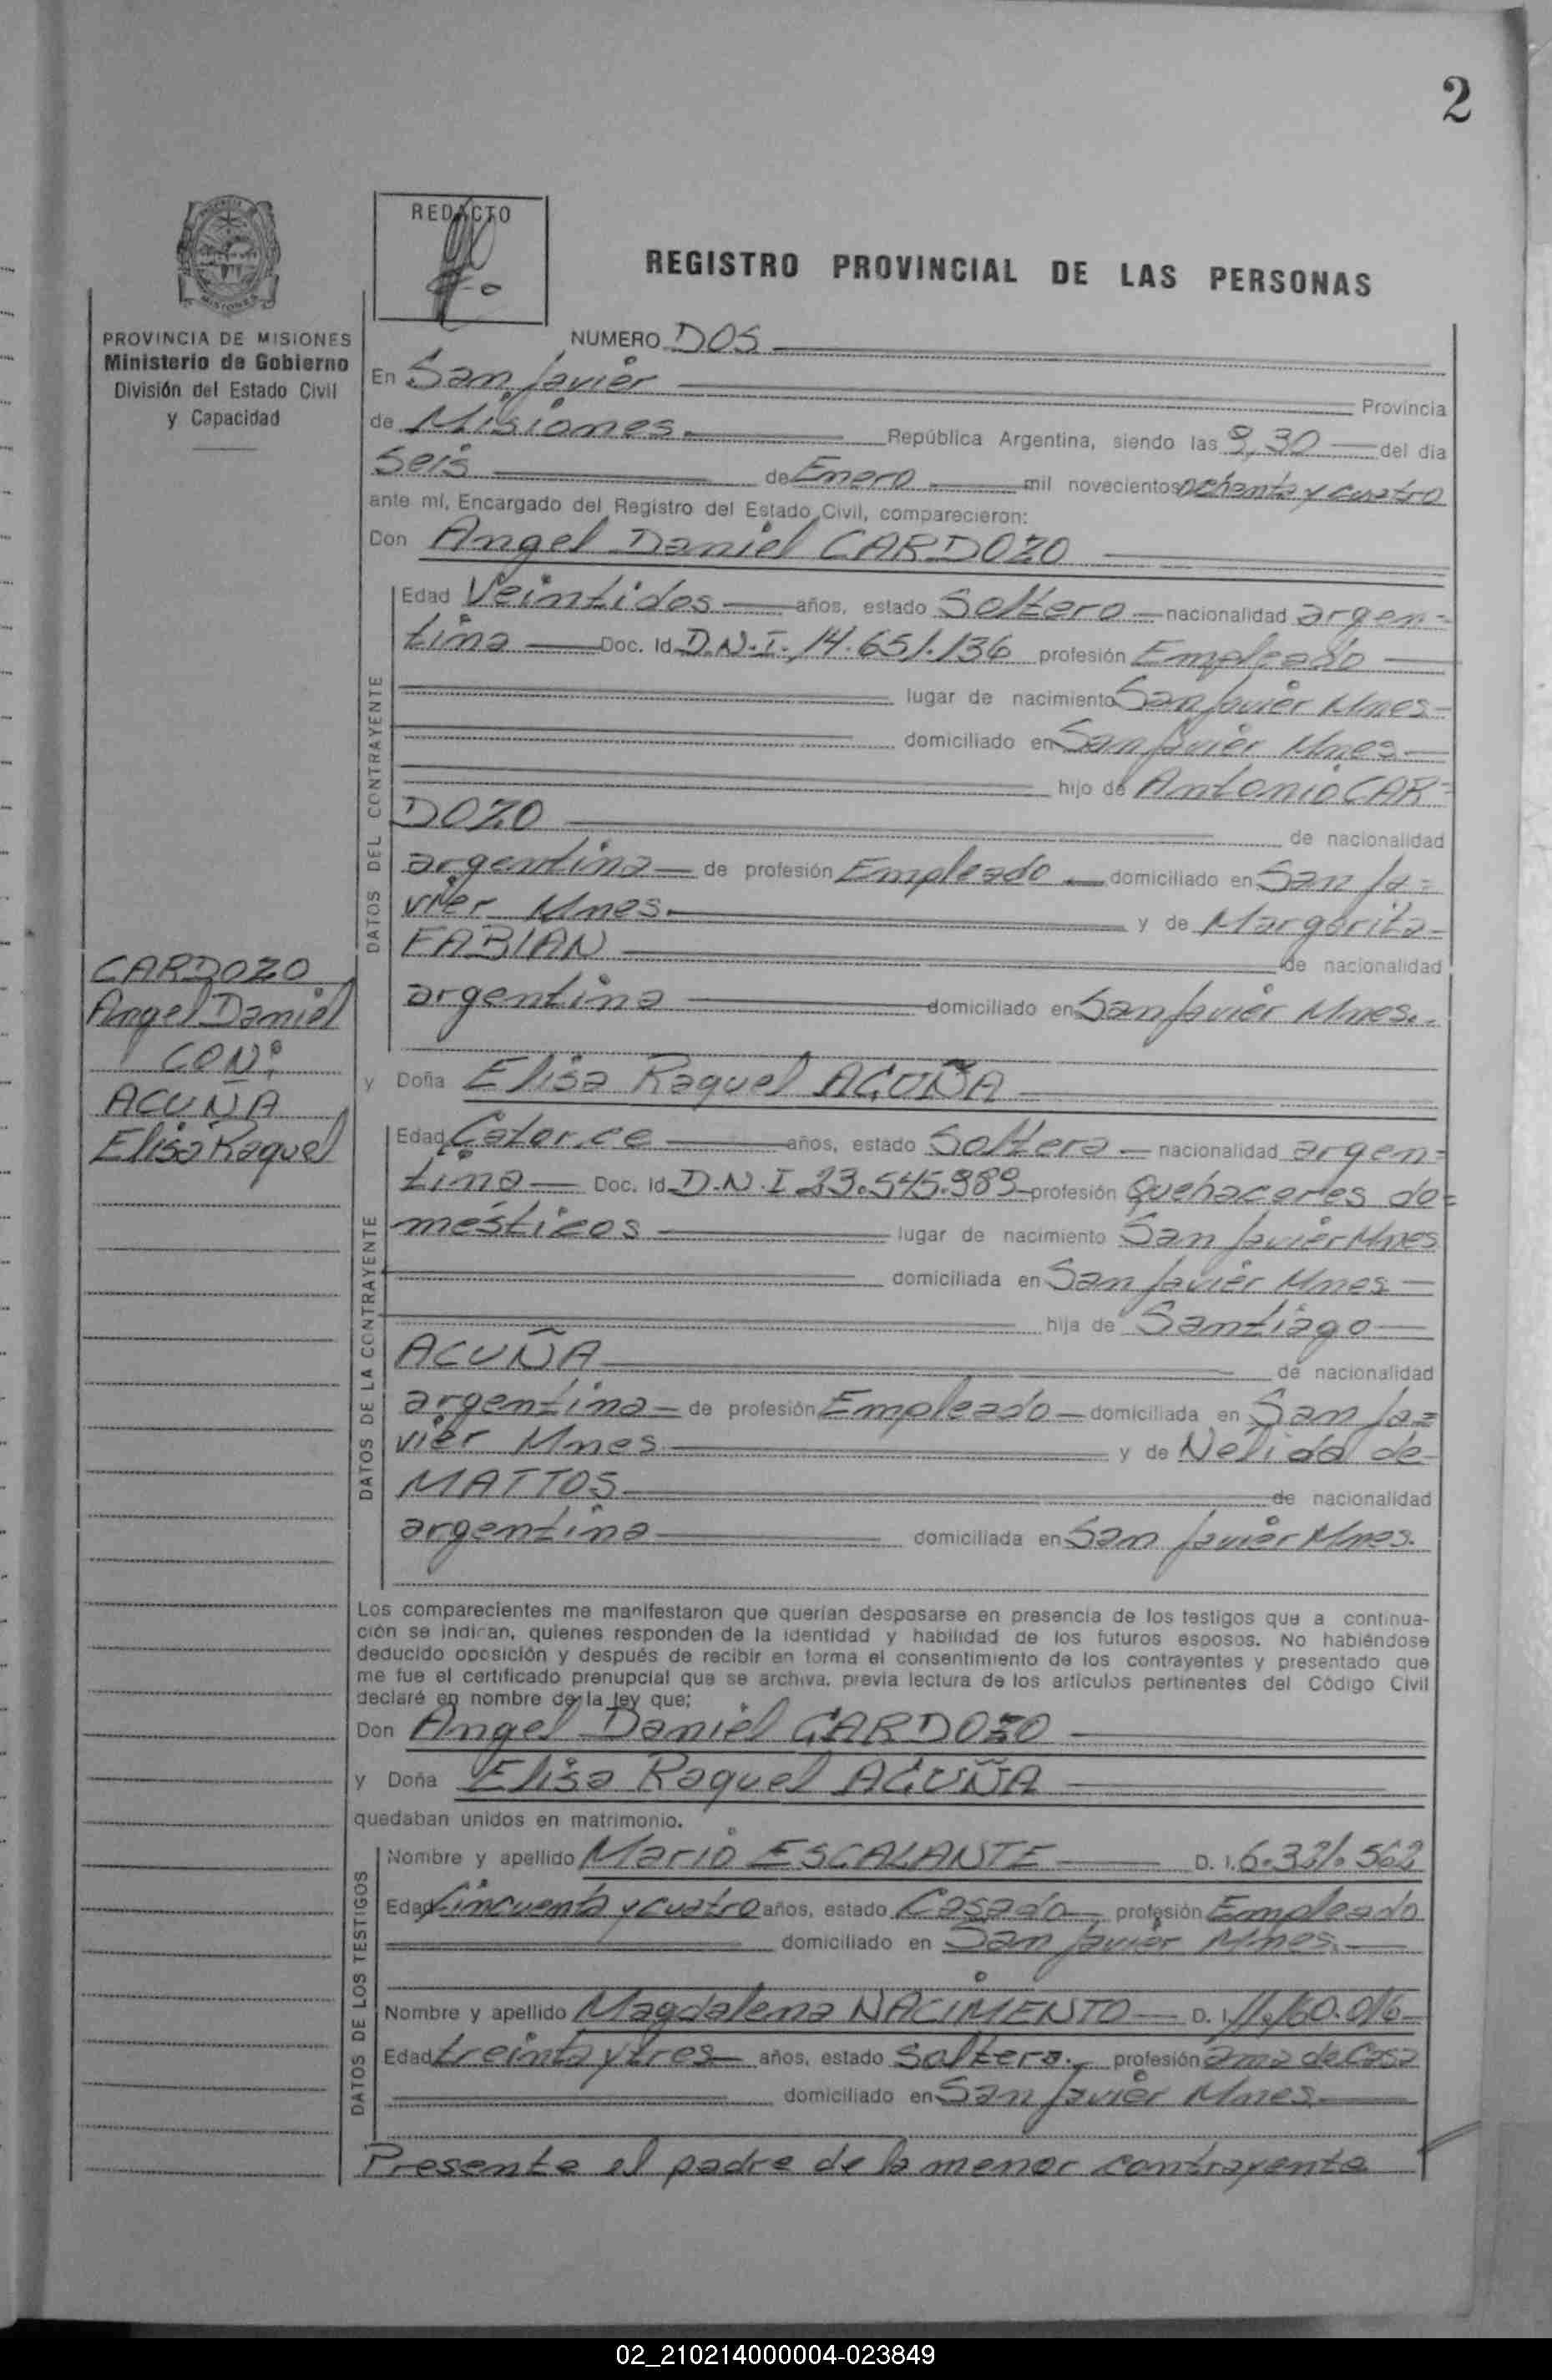 2
REDACTO
REGISTRO PROVINCIAL DE LAS PERSONAS
PROVINCIA DE MISIONES
Ministerio de Gobierno
División del Estado Civil
y Capacidad
NUMERO DOS
En San Javier Provincia
de Misiones República Argentina, siendo las 9,30 del dia
Seis de Enero mil novecientos ochenta y cuatro
ante mí, Encargado del Registro del Estado Civil, comparecieron:
Don Angel Daniel CARDOZO
DATOS DEL CONTRAYENTE
Edad Veintidos años, estado Soltero nacionalidad argen-
tina Doc. Id. D.N.I. 14.651.136 profesión Empleado
lugar de nacimiento San Javier Mnes
domiciliado en San Javier Mnes
hijo de Antonio CAR-
DOZO de nacionalidad
argentina de profesión Empleado domiciliado en San Ja-
vier Mnes. y de Margarita
FABIAN de nacionalidad
argentina domiciliado en San Javier Mnes.
CARDOZO
Angel Daniel
CON:
ACUÑA
Elisa Raquel
y Doña Elisa Raquel ACUÑA
DATOS DE LA CONTRAYENTE
Edad Catorce años, estado Soltera nacionalidad argen-
tina Doc. Id. D.N.I 23.545.989 profesión Quehaceres do-
mésticos lugar de nacimiento San Javier Mnes
domiciliada en San Javier Mnes
hija de Santiago
ACUÑA de nacionalidad
argentina de profesión Empleado domiciliada en San Ja-
vier Mnes. y de Nelida de
MATTOS de nacionalidad
argentina domiciliada en San Javier Mnes.
Los comparecientes me manifestaron que querían desposarse en presencia de los testigos que a continua-
ción se indican, quienes responden de la identidad y habilidad de los futuros esposos. No habiéndose
deducido oposición y después de recibir en forma el consentimiento de los contrayentes y presentado que
me fue el certificado prenupcial que se archiva, previa lectura de los artículos pertinentes del Código Civil
declaré en nombre de la ley que:
Don Angel Daniel CARDOZO
y Doña Elisa Raquel ACUÑA
quedaban unidos en matrimonio.
DATOS DE LOS TESTIGOS
Nombre y apellido Mario ESCALANTE D. I. 6.331.562
Edad Cincuenta y cuatro años, estado Casado profesión Empleado
domiciliado en San Javier Mnes.
Nombre y apellido Magdalena NACIMENTO D. I. 11.160.016
Edad treinta y tres años, estado Soltera. profesión ama de Casa
domiciliado en San Javier Mnes.
Presente el padre de la menor contrayente
02_210214000004-023849